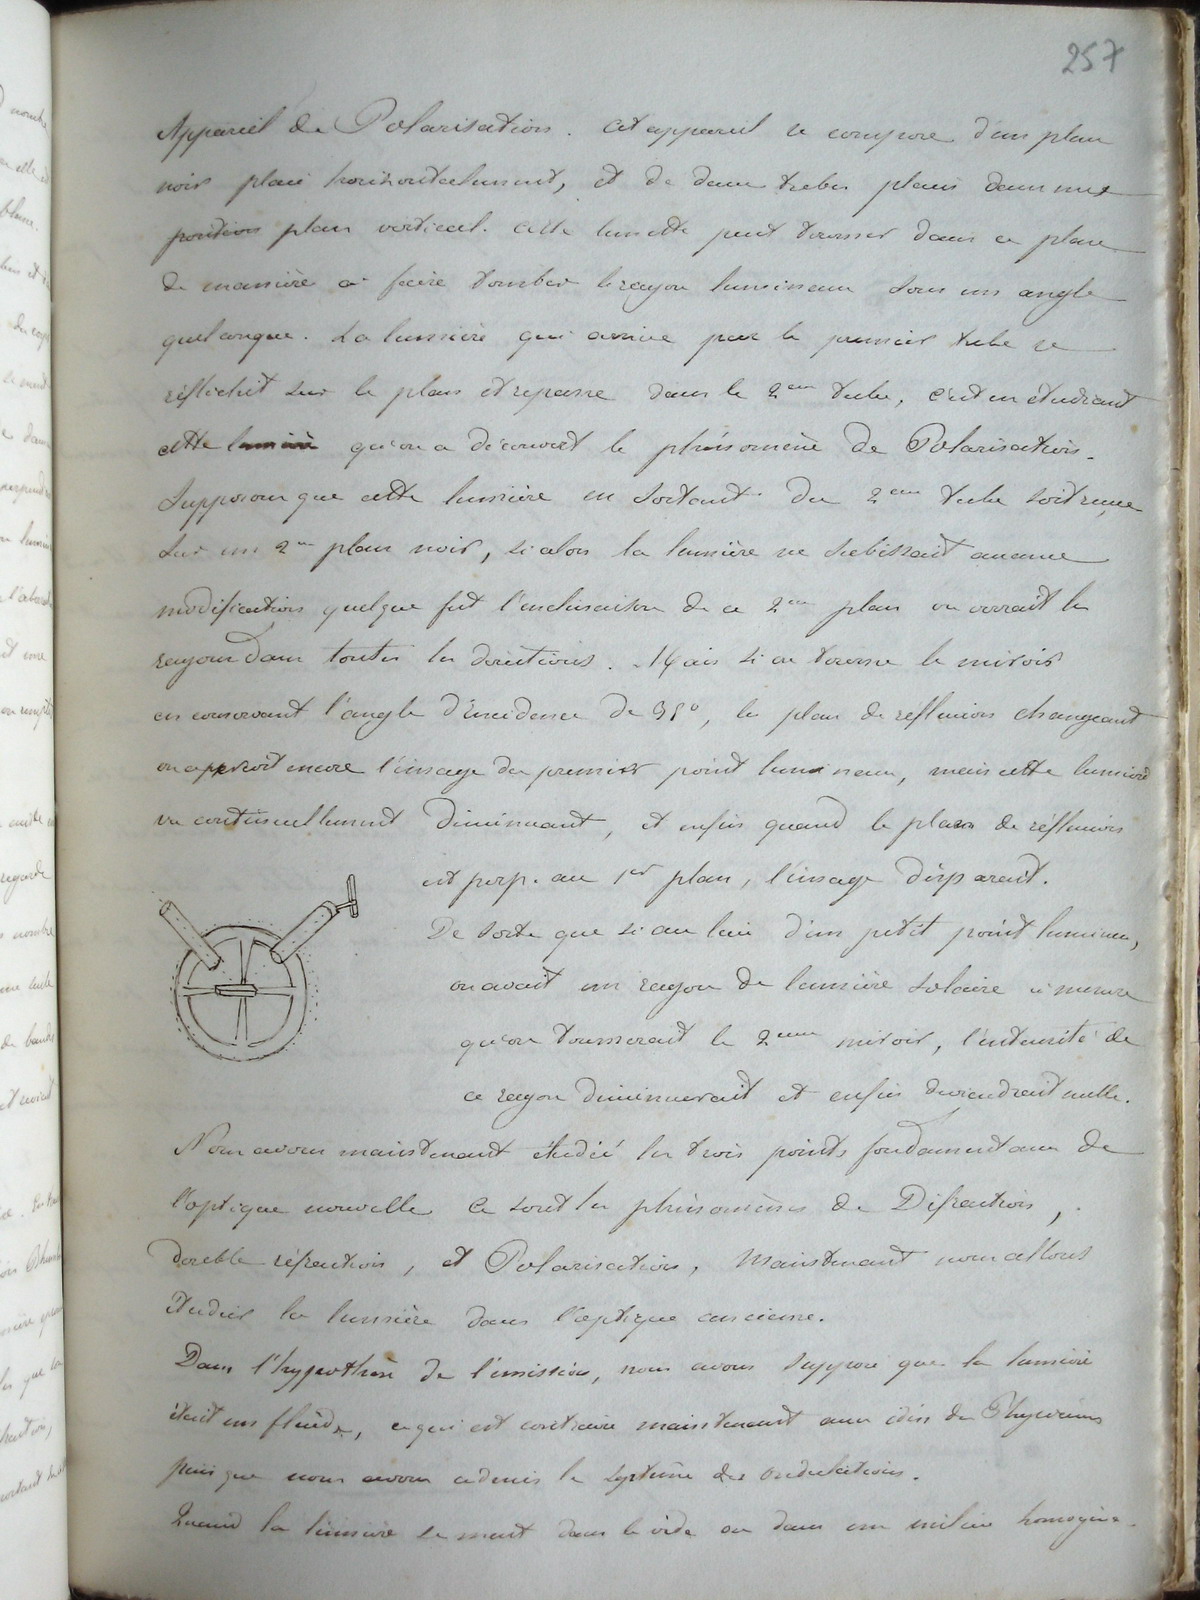 257
Appareil de Polarisation. Cet appareil se compose d'un plan
noir placé horizontalement, et de deux tubes placés dans une
position plan vertical. Cette lunette peut tourner dans ce plan
de manière à faire tomber le rayon lumineux sous un angle
quelconque. La lumière qui arrive par le premier tube se
réfléchit sur le plan et repasse dans le 2eme tube, c'est en étudiant
cette lumière qu'on a découvert le phénomène de Polarisation.
Supposons que cette lumière en sortant du 2eme tube soit reçue
sur un 2eme plan noir, si alors la lumière ne subissait aucune
modification quelque fut l'inclinaison de ce 2eme plan on verrait les
rayons dans toutes les directions. Mais si on tourne le miroir
en conservant l'angle d'incidence de 35°, les plans de réflexion changeant
on apperçoit encore l'image du premier point lumineux, mais cette lumière
va continuellement diminuant, et enfin quand le plan de réflexion
est perp. au 1er plan, l'image disparait.
De sorte que si au lieu d'un petit point lumineux,
on avait un rayon de lumière solaire à mesure
qu'on tournerait le 2eme miroir, l'intensité de
ce rayon diminuerait et enfin deviendrait nulle.
Nous avons maintenant étudié les trois points fondamentaux de
l'optique nouvelle ce sont les phénomènes de Difraction,
double réfraction, et Polarisation, Maintenant nous allons
étudier la lumière dans l'optique ancienne.
Dans l'hypothèse de l'émission, nous avons supposé que la lumière
était un fluide, ce qui est contraire maintenant aux idées des Physiciens
puisque nous avons admis le système des ondulations.
Quand la lumière se meut dans le vide ou dans un milieu homogène